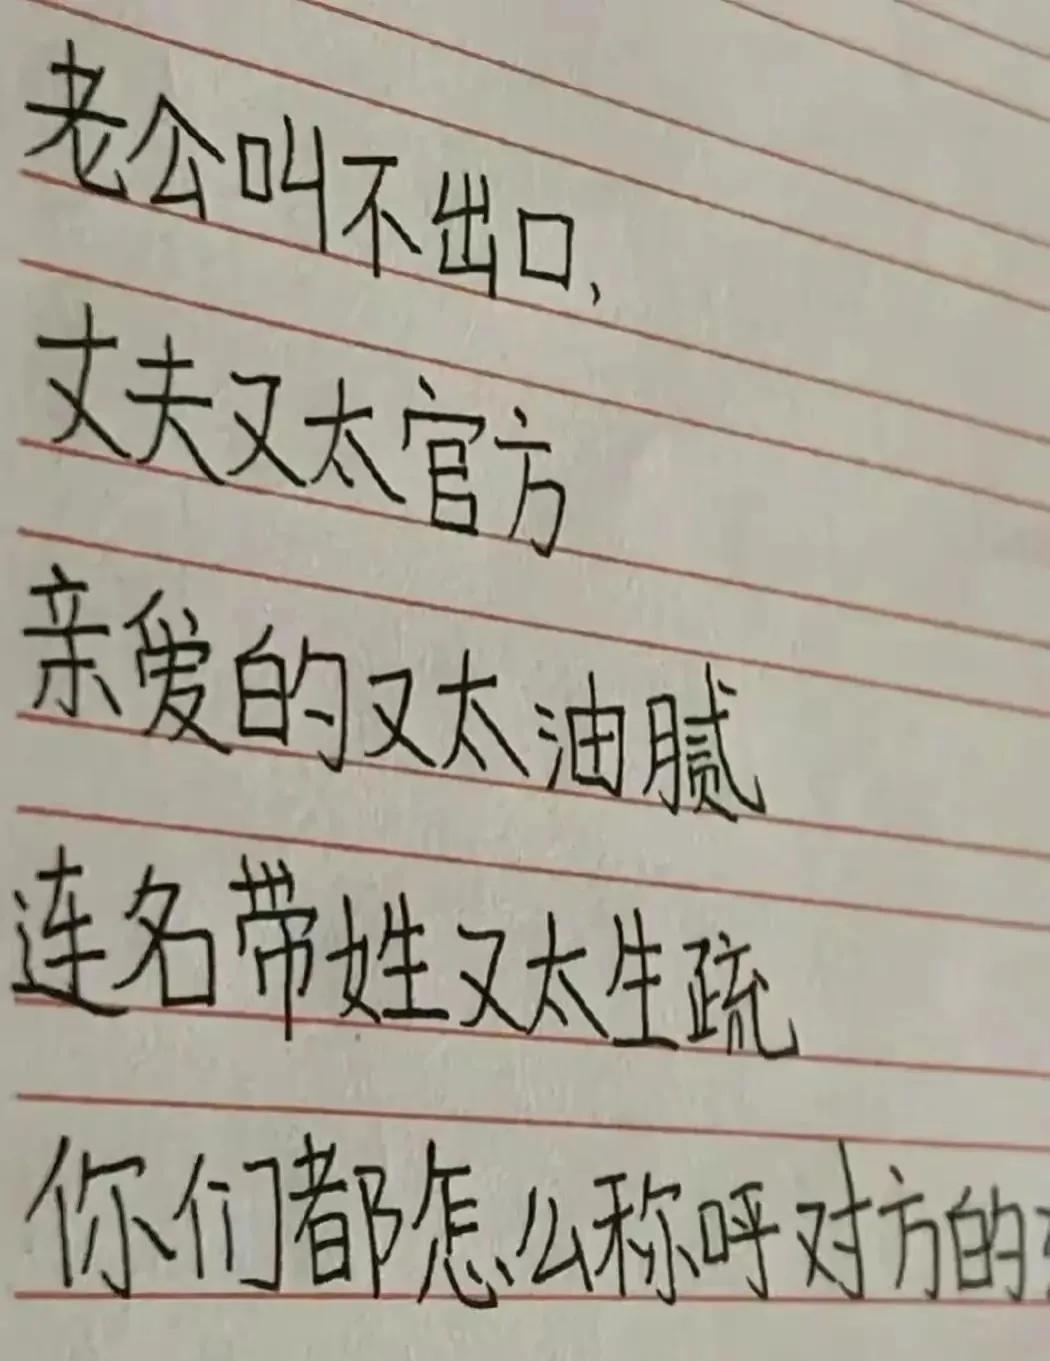 老公叫不出口,
丈夫又太官方
亲爱的又太油腻
连名带姓又太生疏
你们都怎么称呼对方的